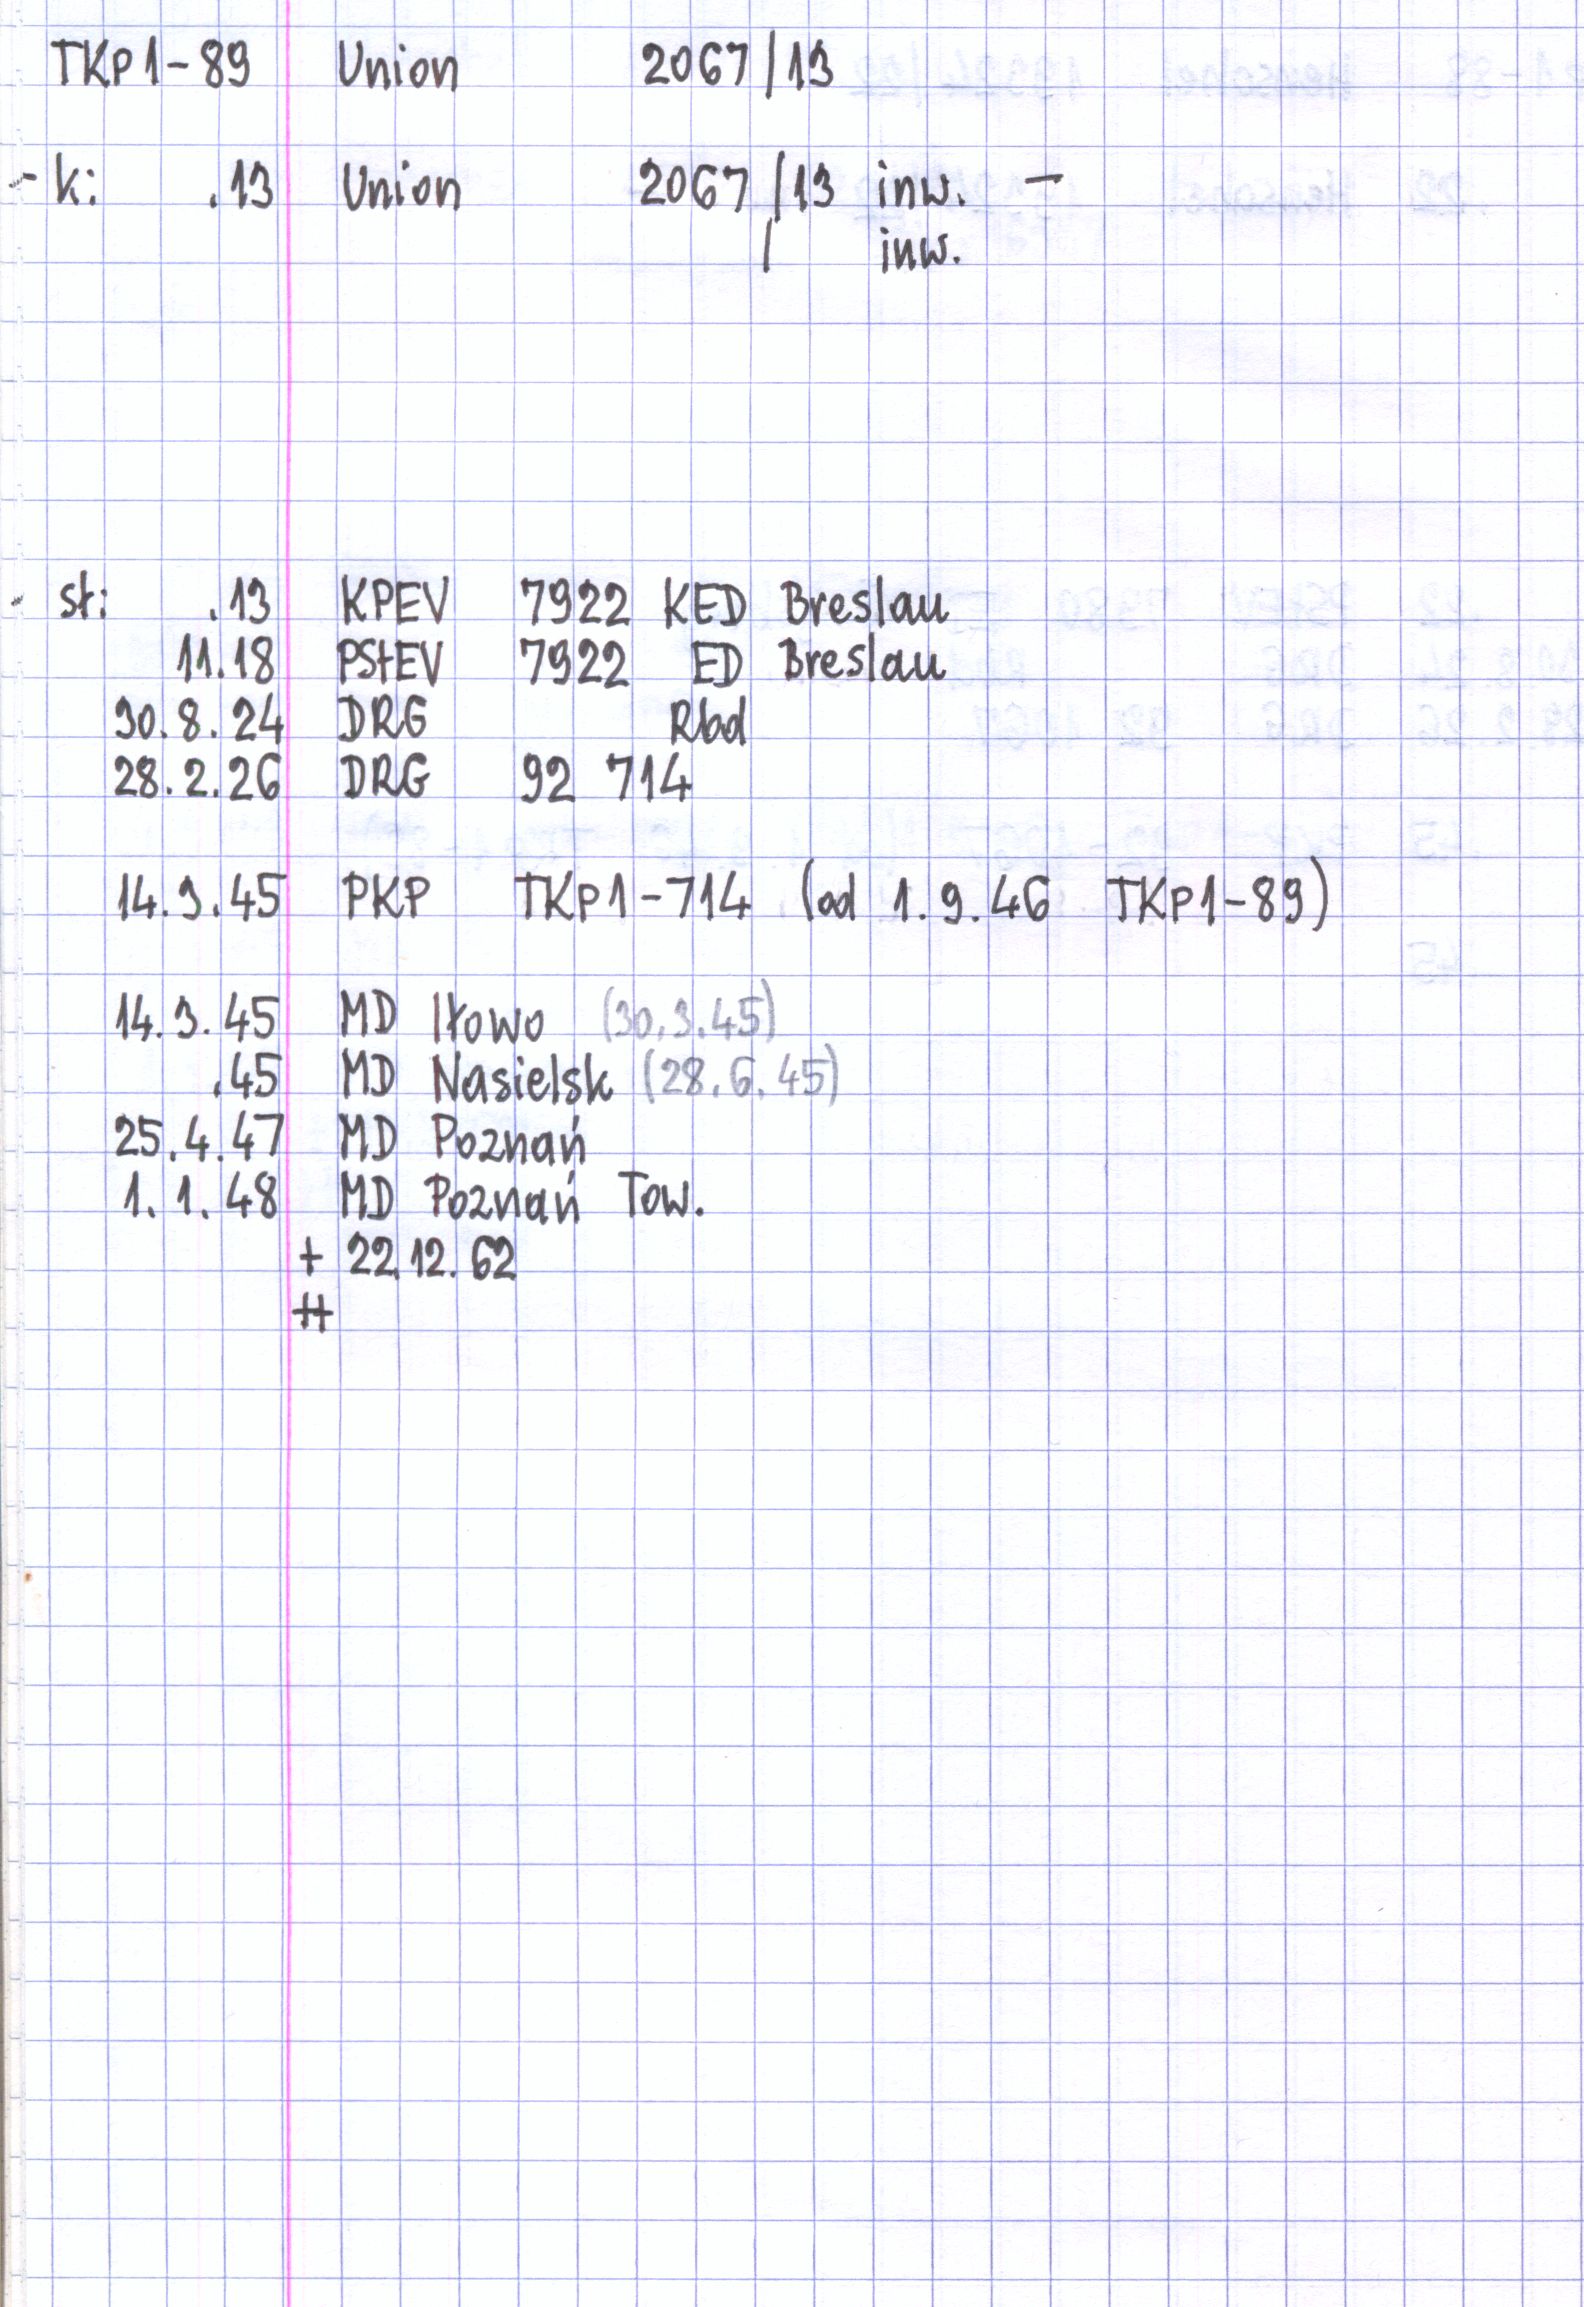 TKp1-89 Union 2067/13
- k: .13 Union 2067/13 inw. -
/ inw.
- st: .13 KPEV 7922 KED Breslau
11.18 PStEV 7922 ED Breslau
30.8.24 DRG Rbd
28.2.26 DRG 92 714
14.3.45 PKP TKp1-714 (od 1.9.46 TKp1-89)
14.3.45 MD Iłowo (30.3.45)
.45 MD Nasielsk (28.6.45)
25.4.47 MD Poznań
1.1.48 MD Poznań Tow.
+ 22.12.62
++